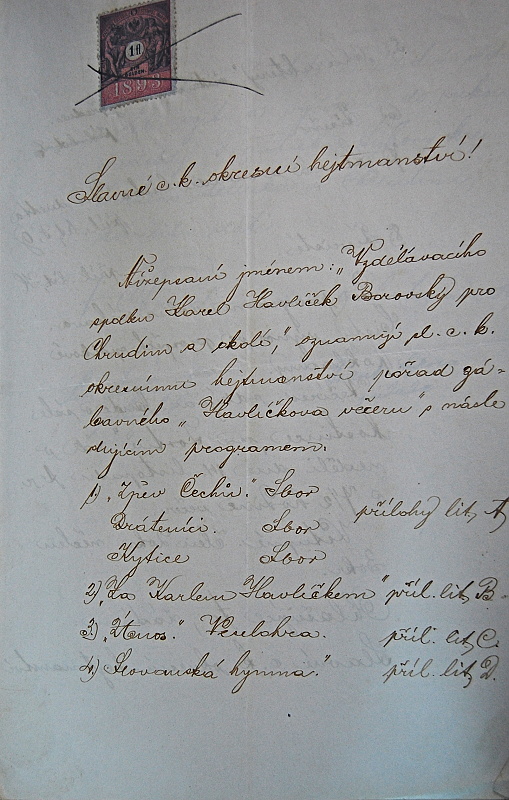 1 fl
1893
Slavné c. k. okresní hejtmanství!
Nížepsaní jménem: „Vzdělávacího
spolku Karel Havlíček Borovský pro
Chrudim a okolí," oznamují sl. c. k.
okresnímu hejtmanství pořad zá-
bavného „Havlíčkova večeru" s násle
dujícím programem.
1) „Zpěv Čechů." Sbor
Dráteníci. Sbor přílohy lit. A)
Kytice Sbor
2) „Za Karlem Havlíčkem" příl. lit. B.
3.) „Únos." Veselohra. příl. lit. C.
4) Slovanská hymna." příl. lit. D.